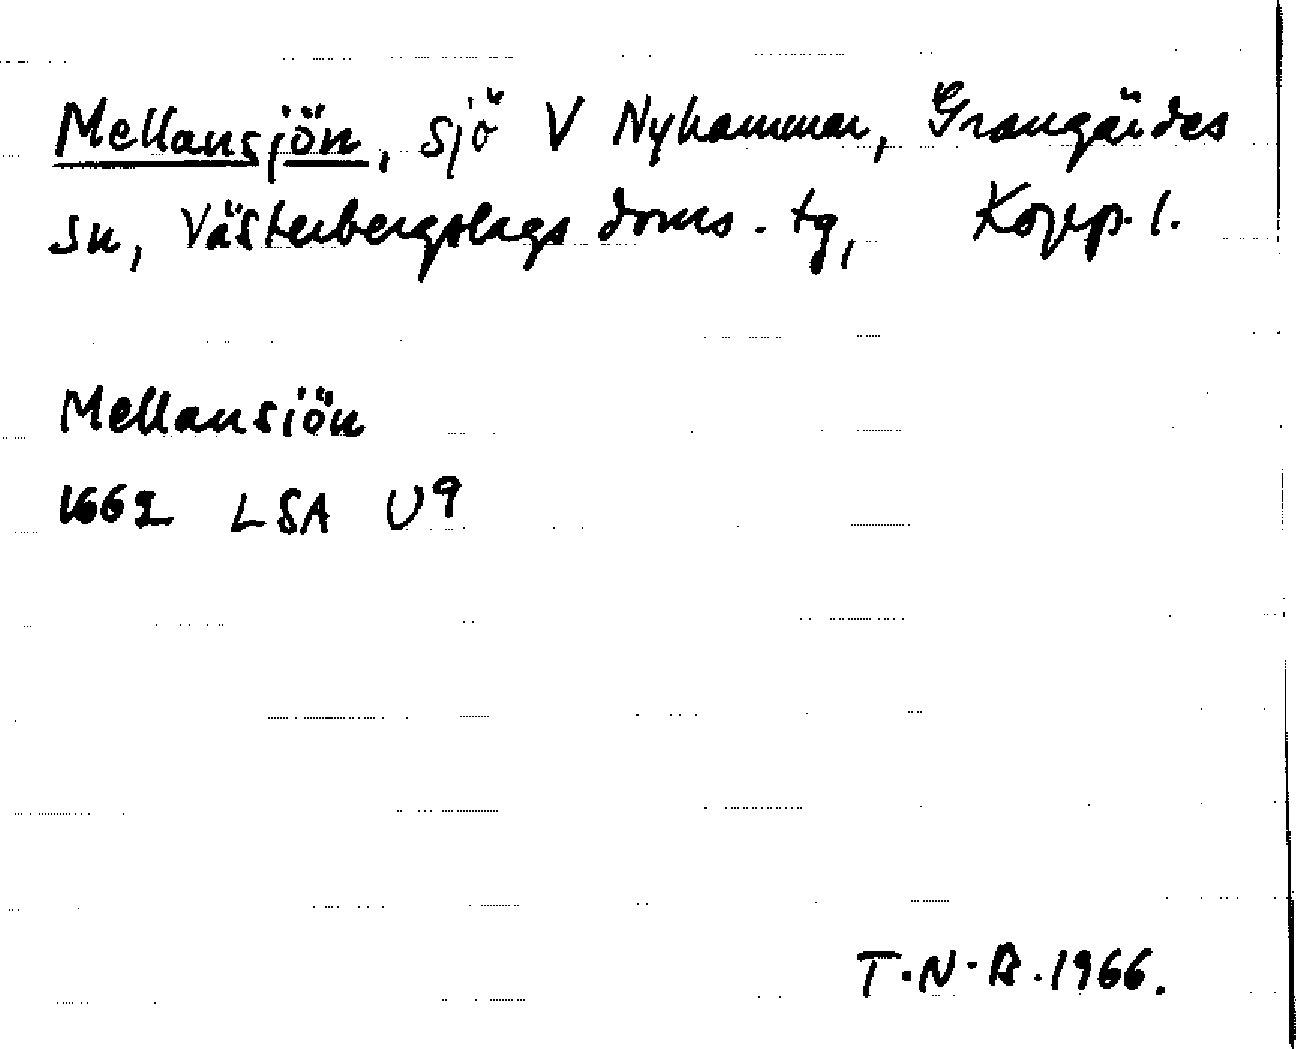 Mellansjön, sjö V Nyhammar, Grangärdes
sn, Västerbergslags doms. tg, Kopp. l.
Mellansiön
1662 LSA U9
T.N.B. 1966.